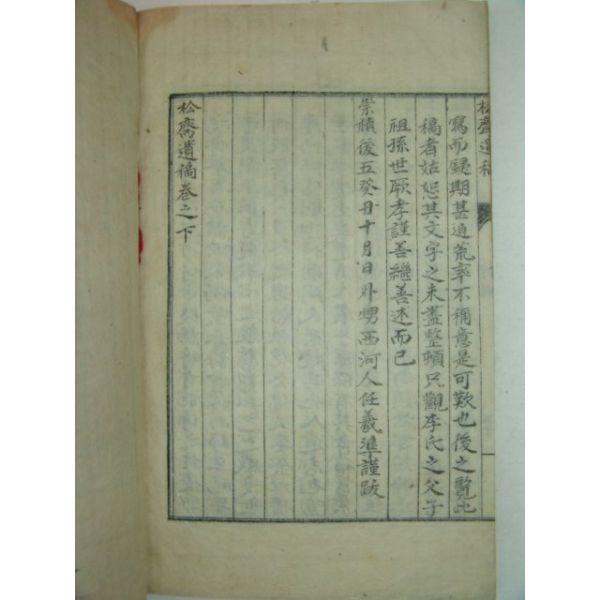 松齋遺稿
寫而歸期甚逼荒率不稱意是可歎也後之覽此
稿者姑恕其文字之未盡整頓只觀李氏之父子
祖孫世厥孝謹善繼善述而已
崇禎後五癸丑十月日外甥西河人任羲準謹跋
松齋遺稿卷之下